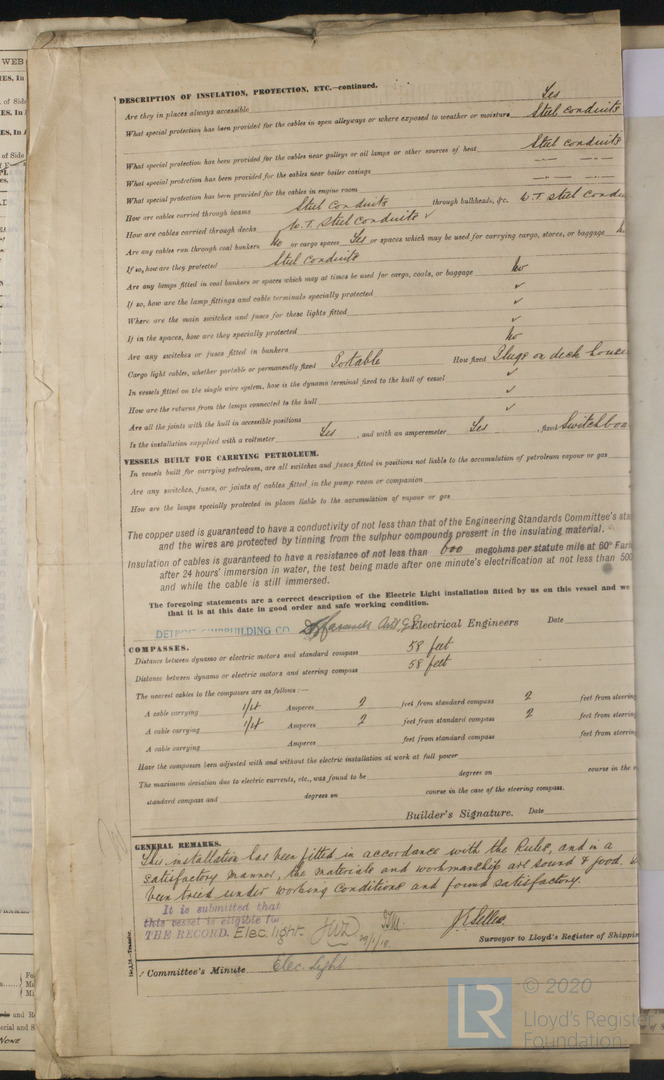 DESCRIPTION OF INSULATION, PROTECTION, ETC.—continued.
Are they in places always accessible Yes
What special protection has been provided for the cables in open alleyways or where exposed to weather or moisture Steel conduits
What special protection has been provided for the cables near galleys or oil lamps or other sources of heat Steel conduits
What special protection has been provided for the cables near boiler casings
What special protection has been provided for the cables in engine room
How are cables carried through beams Steel conduits through bulkheads, &c. W.T. steel condu
How are cables carried through decks W.T. Steel conduits ✓
Are any cables run through coal bunkers No or cargo spaces Yes or spaces which may be used for carrying cargo, stores, or baggage
If so, how are they protected Steel conduits
Are any lamps fitted in coal bunkers or spaces which may at times be used for cargo, coals, or baggage No
If so, how are the lamp fittings and cable terminals specially protected ✓
Where are the main switches and fuses for these lights fitted ✓
If in the spaces, how are they specially protected ✓
Are any switches or fuses fitted in bunkers No
Cargo light cables, whether portable or permanently fixed Portable How fixed Plugs on deck houses
In vessels fitted on the single wire system, how is the dynamo terminal fixed to the hull of vessel ✓
How are the returns from the lamps connected to the hull ✓
Are all the joints with the hull in accessible positions ✓
Is the installation supplied with a voltmeter Yes , and with an amperemeter Yes , fixed Switchboa
VESSELS BUILT FOR CARRYING PETROLEUM.
In vessels built for carrying petroleum, are all switches and fuses fitted in positions not liable to the accumulation of petroleum vapour or gas
Are any switches, fuses, or joints of cables fitted in the pump room or companion
How are the lamps specially protected in places liable to the accumulation of vapour or gas
The copper used is guaranteed to have a conductivity of not less than that of the Engineering Standards Committee's sta
and the wires are protected by tinning from the sulphur compounds present in the insulating material.
Insulation of cables is guaranteed to have a resistance of not less than 600 megohms per statute mile at 60° Fa
after 24 hours' immersion in water, the test being made after one minute's electrification at not less than 500
and while the cable is still immersed.
The foregoing statements are a correct description of the Electric Light installation fitted by us on this vessel and we
that it is at this date in good order and safe working condition.
DETROIT SHIPBUILDING CO Electrical Engineers Date
COMPASSES.
Distance between dynamo or electric motors and standard compass 58 feet
Distance between dynamo or electric motors and steering compass 58 feet
The nearest cables to the compasses are as follows:—
A cable carrying 1/4 Amperes 2 feet from standard compass 2 feet from steering
A cable carrying 1/4 Amperes 2 feet from standard compass 2 feet from steering
A cable carrying Amperes feet from standard compass feet from steering
Have the compasses been adjusted with and without the electric installation at work at full power
The maximum deviation due to electric currents, etc., was found to be degrees on course in the
standard compass and degrees on course in the case of the steering compass.
Builder's Signature. Date
GENERAL REMARKS.
This installation has been fitted in accordance with the Rules, and in a
satisfactory manner, the materials and workmanship are sound & good.
been tried under working conditions and found satisfactory.
It is submitted that
this vessel is eligible for
THE RECORD. Elec. light.
Surveyor to Lloyd's Register of Shippin
Committee's Minute Elec. Light
LR © 2020
Lloyd's Register
Foundation